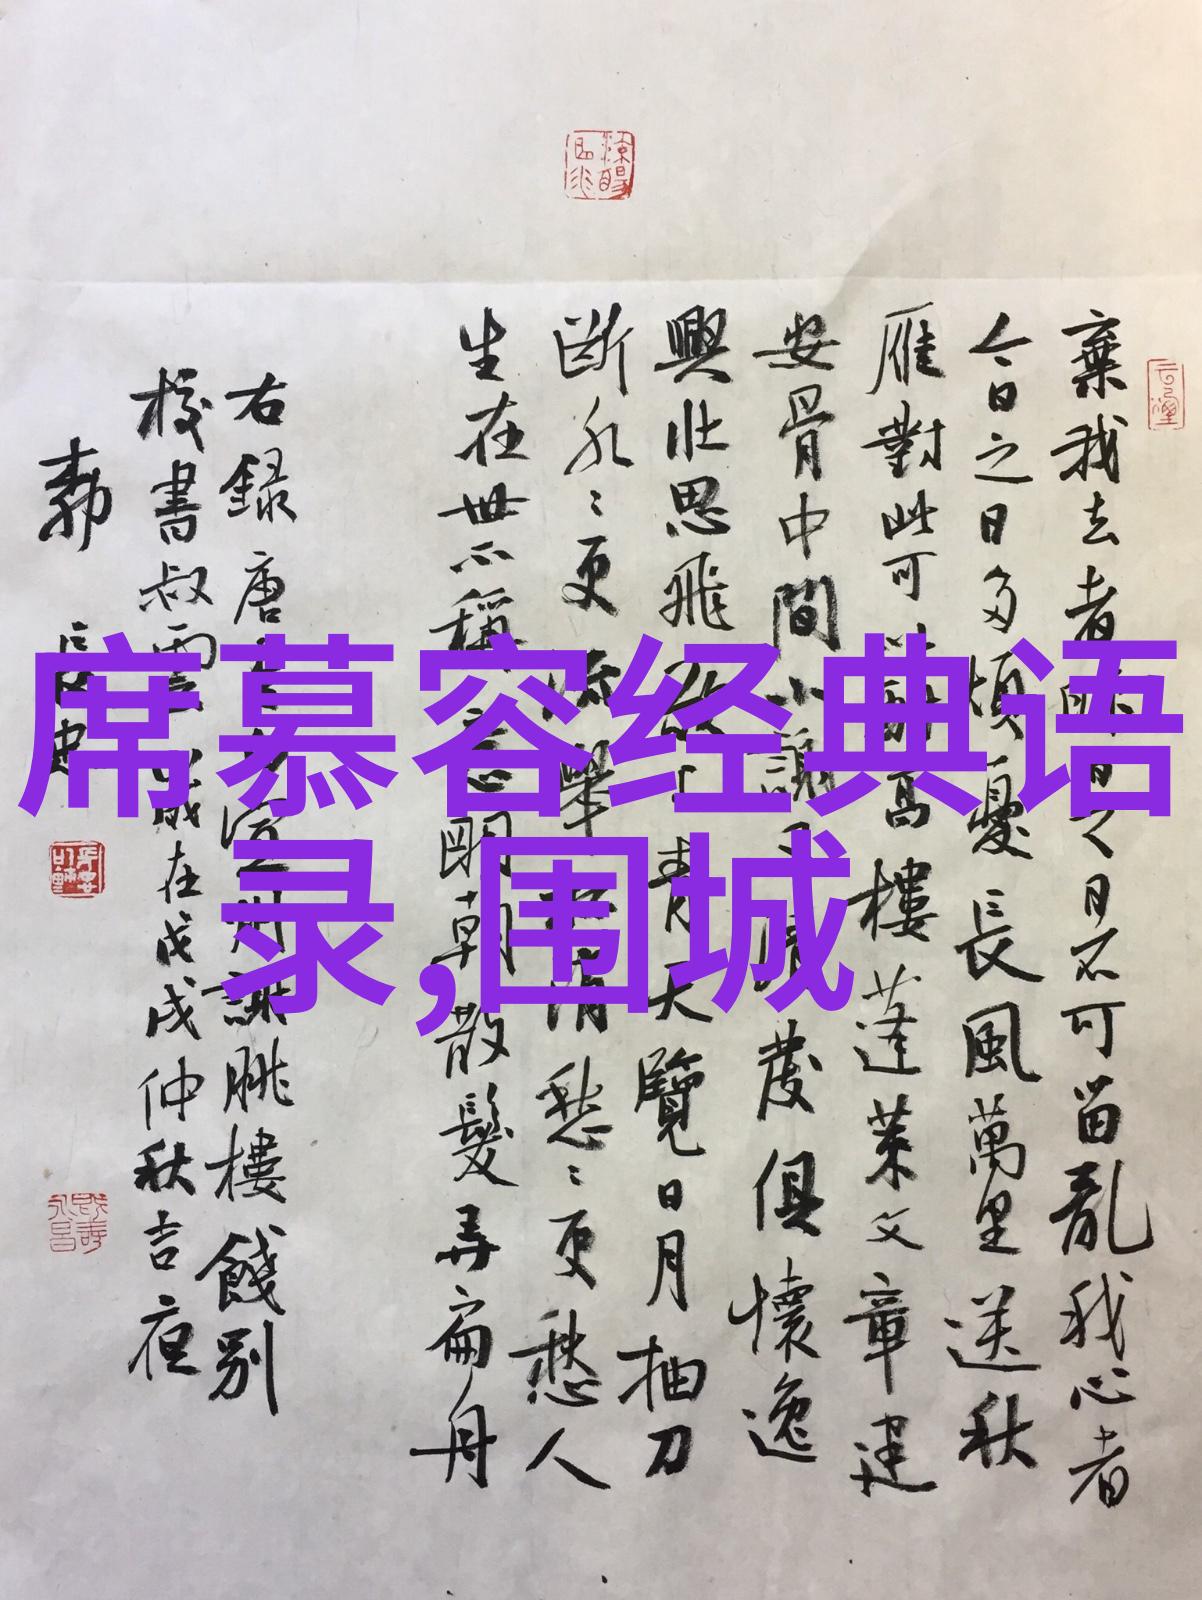 席慕容经典语
录,围城
棄我去者昨日之日不可留亂我心者
今日之日多煩憂長風萬里送秋
雁對此可以酣高樓蓬萊文章建
安骨中間小謝又清發俱懷逸
興壯思飛欲上青天覽日月抽刀
斷水〻更流舉杯消愁〻更愁人
生在世不稱意明朝散髮弄扁舟
右録唐李白宣州謝朓樓餞別
校書叔雲歲在戊戌仲秋吉夜